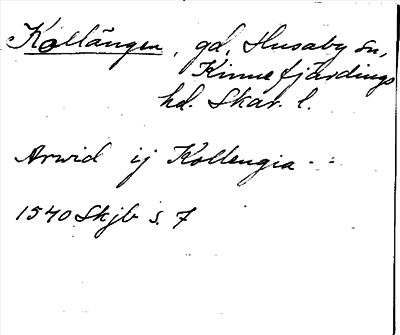 Kollängen, gd, Husaby sn,
Kinnefjärdings
hd. Skar. l.
Arwid ij Kollengia
1540 Skjb s. 7